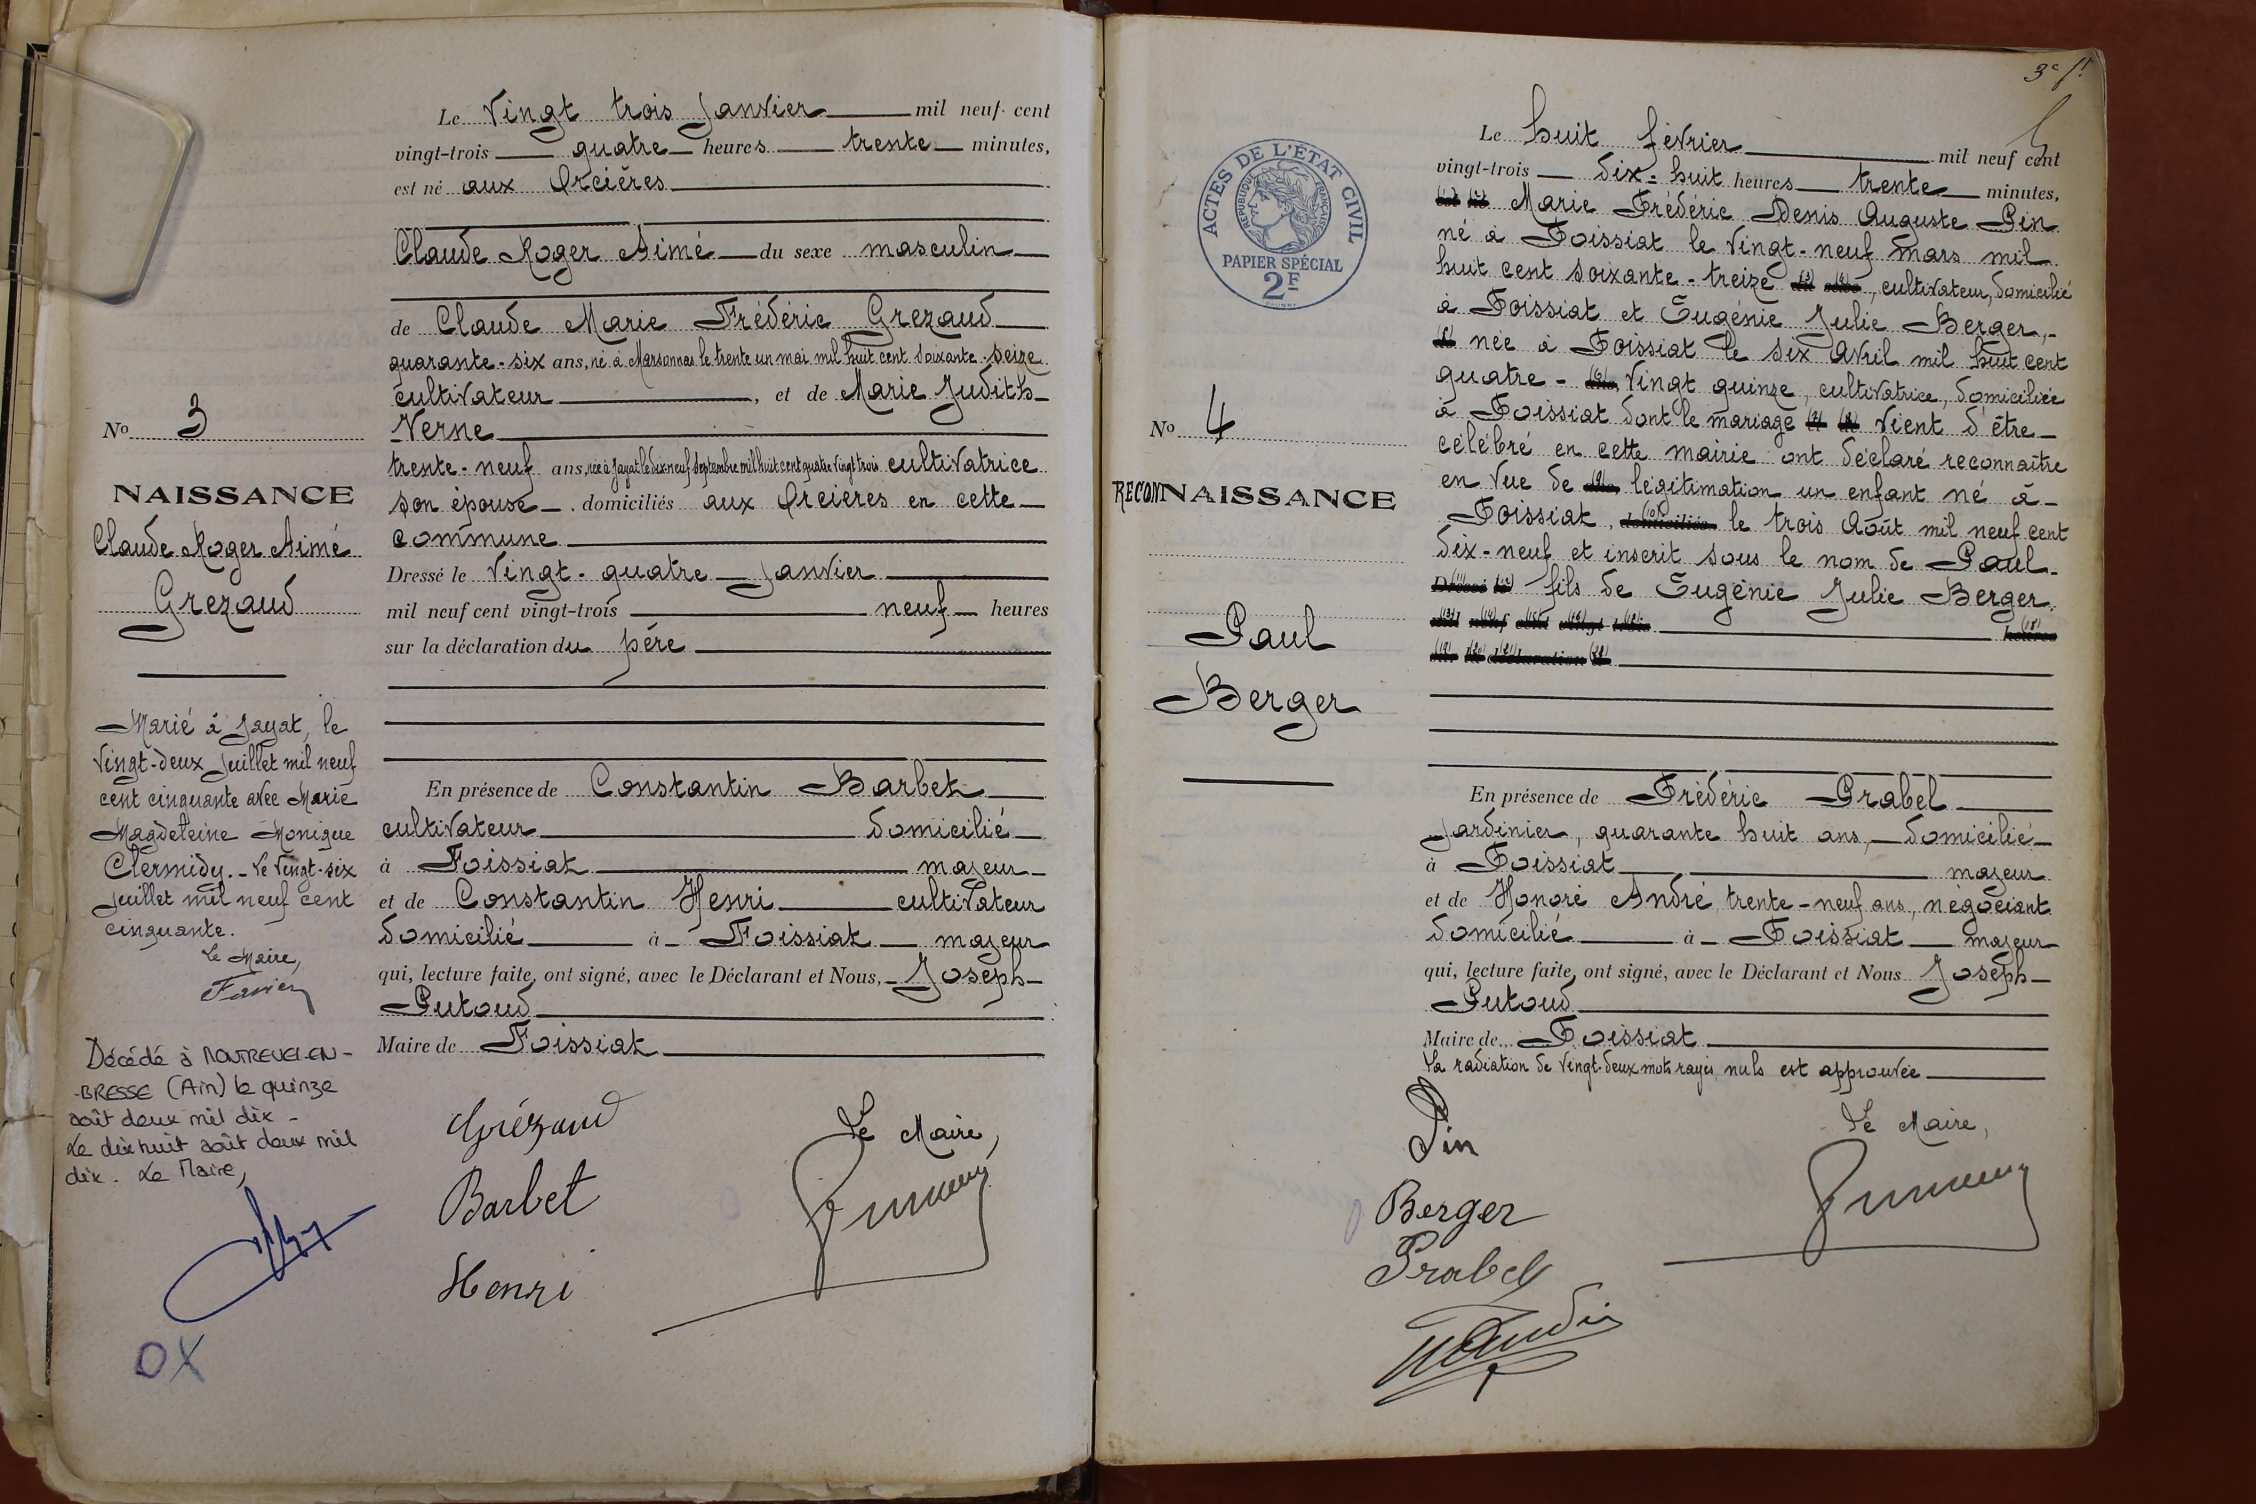 Le Vingt trois Janvier mil neuf cent
vingt-trois quatre heures trente minutes,
est né aux Orcières
Claude Roger Aimé du sexe masculin
de Claude Marie Frédéric Grezaud
quarante-six ans, né à Marsonnas le trente un mai mil huit cent soixante-seize
cultivateur, et de Marie Judith
Verne
trente-neuf ans, née à Jayat le dix-neuf Septembre mil huit cent quatre vingt trois cultivatrice
son épouse. domiciliés aux Orcières en cette
commune
Dressé le Vingt-quatre Janvier
mil neuf cent vingt-trois neuf heures
sur la déclaration du père
En présence de Constantin Barbet
cultivateur domicilié
à Foissiat majeur
et de Constantin Henri cultivateur
domicilié à Foissiat majeur
qui, lecture faite, ont signé, avec le Déclarant et Nous, Joseph
Putoud
Maire de Foissiat
Grézaud
Le Maire,
Barbet
Henri
No 3
NAISSANCE
Claude Roger Aimé
Grezaud
Marié à Jayat, le
Vingt-deux Juillet mil neuf
cent cinquante avec Marie
Magdeleine Monique
Clermidy. - Le Vingt-six
Juillet mil neuf cent
cinquante.
Le Maire,
Favier
Décédé à MONTREVEL-EN-
-BRESSE (Ain) le quinze
août deux mil dix -
Le dix huit août deux mil
dix. Le Maire,
OX
3e ft
ACTES DE L'ÉTAT CIVIL
RÉPUBLIQUE FRANÇAISE
PAPIER SPÉCIAL
2F
No 4
RECONNAISSANCE
Paul
Berger
Le huit février mil neuf cent
vingt-trois dix-huit heures trente minutes,
Marie Frédéric Denis Auguste Pin
né à Foissiat le Vingt-neuf mars mil
huit cent soixante-treize, cultivateur, domicilié
à Foissiat et Eugénie Julie Berger,
née à Foissiat le six Avril mil huit cent
quatre-Vingt quinze, cultivatrice, domiciliée
à Foissiat dont le mariage Vient d'être
célébré en cette mairie ont déclaré reconnaître
en Vue de légitimation un enfant né à
Foissiat, le trois Août mil neuf cent
dix-neuf et inscrit sous le nom de Paul
fils de Eugénie Julie Berger.
En présence de Frédéric Prabel
Jardinier, quarante huit ans, domicilié
à Foissiat majeur
et de Honoré André, trente-neuf ans, négociant
domicilié à Foissiat majeur
qui, lecture faite, ont signé, avec le Déclarant et Nous Joseph
Putoud
Maire de Foissiat
La radiation de Vingt-deux mots rayés nuls est approuvée
Pin
Le Maire,
Berger
Prabel